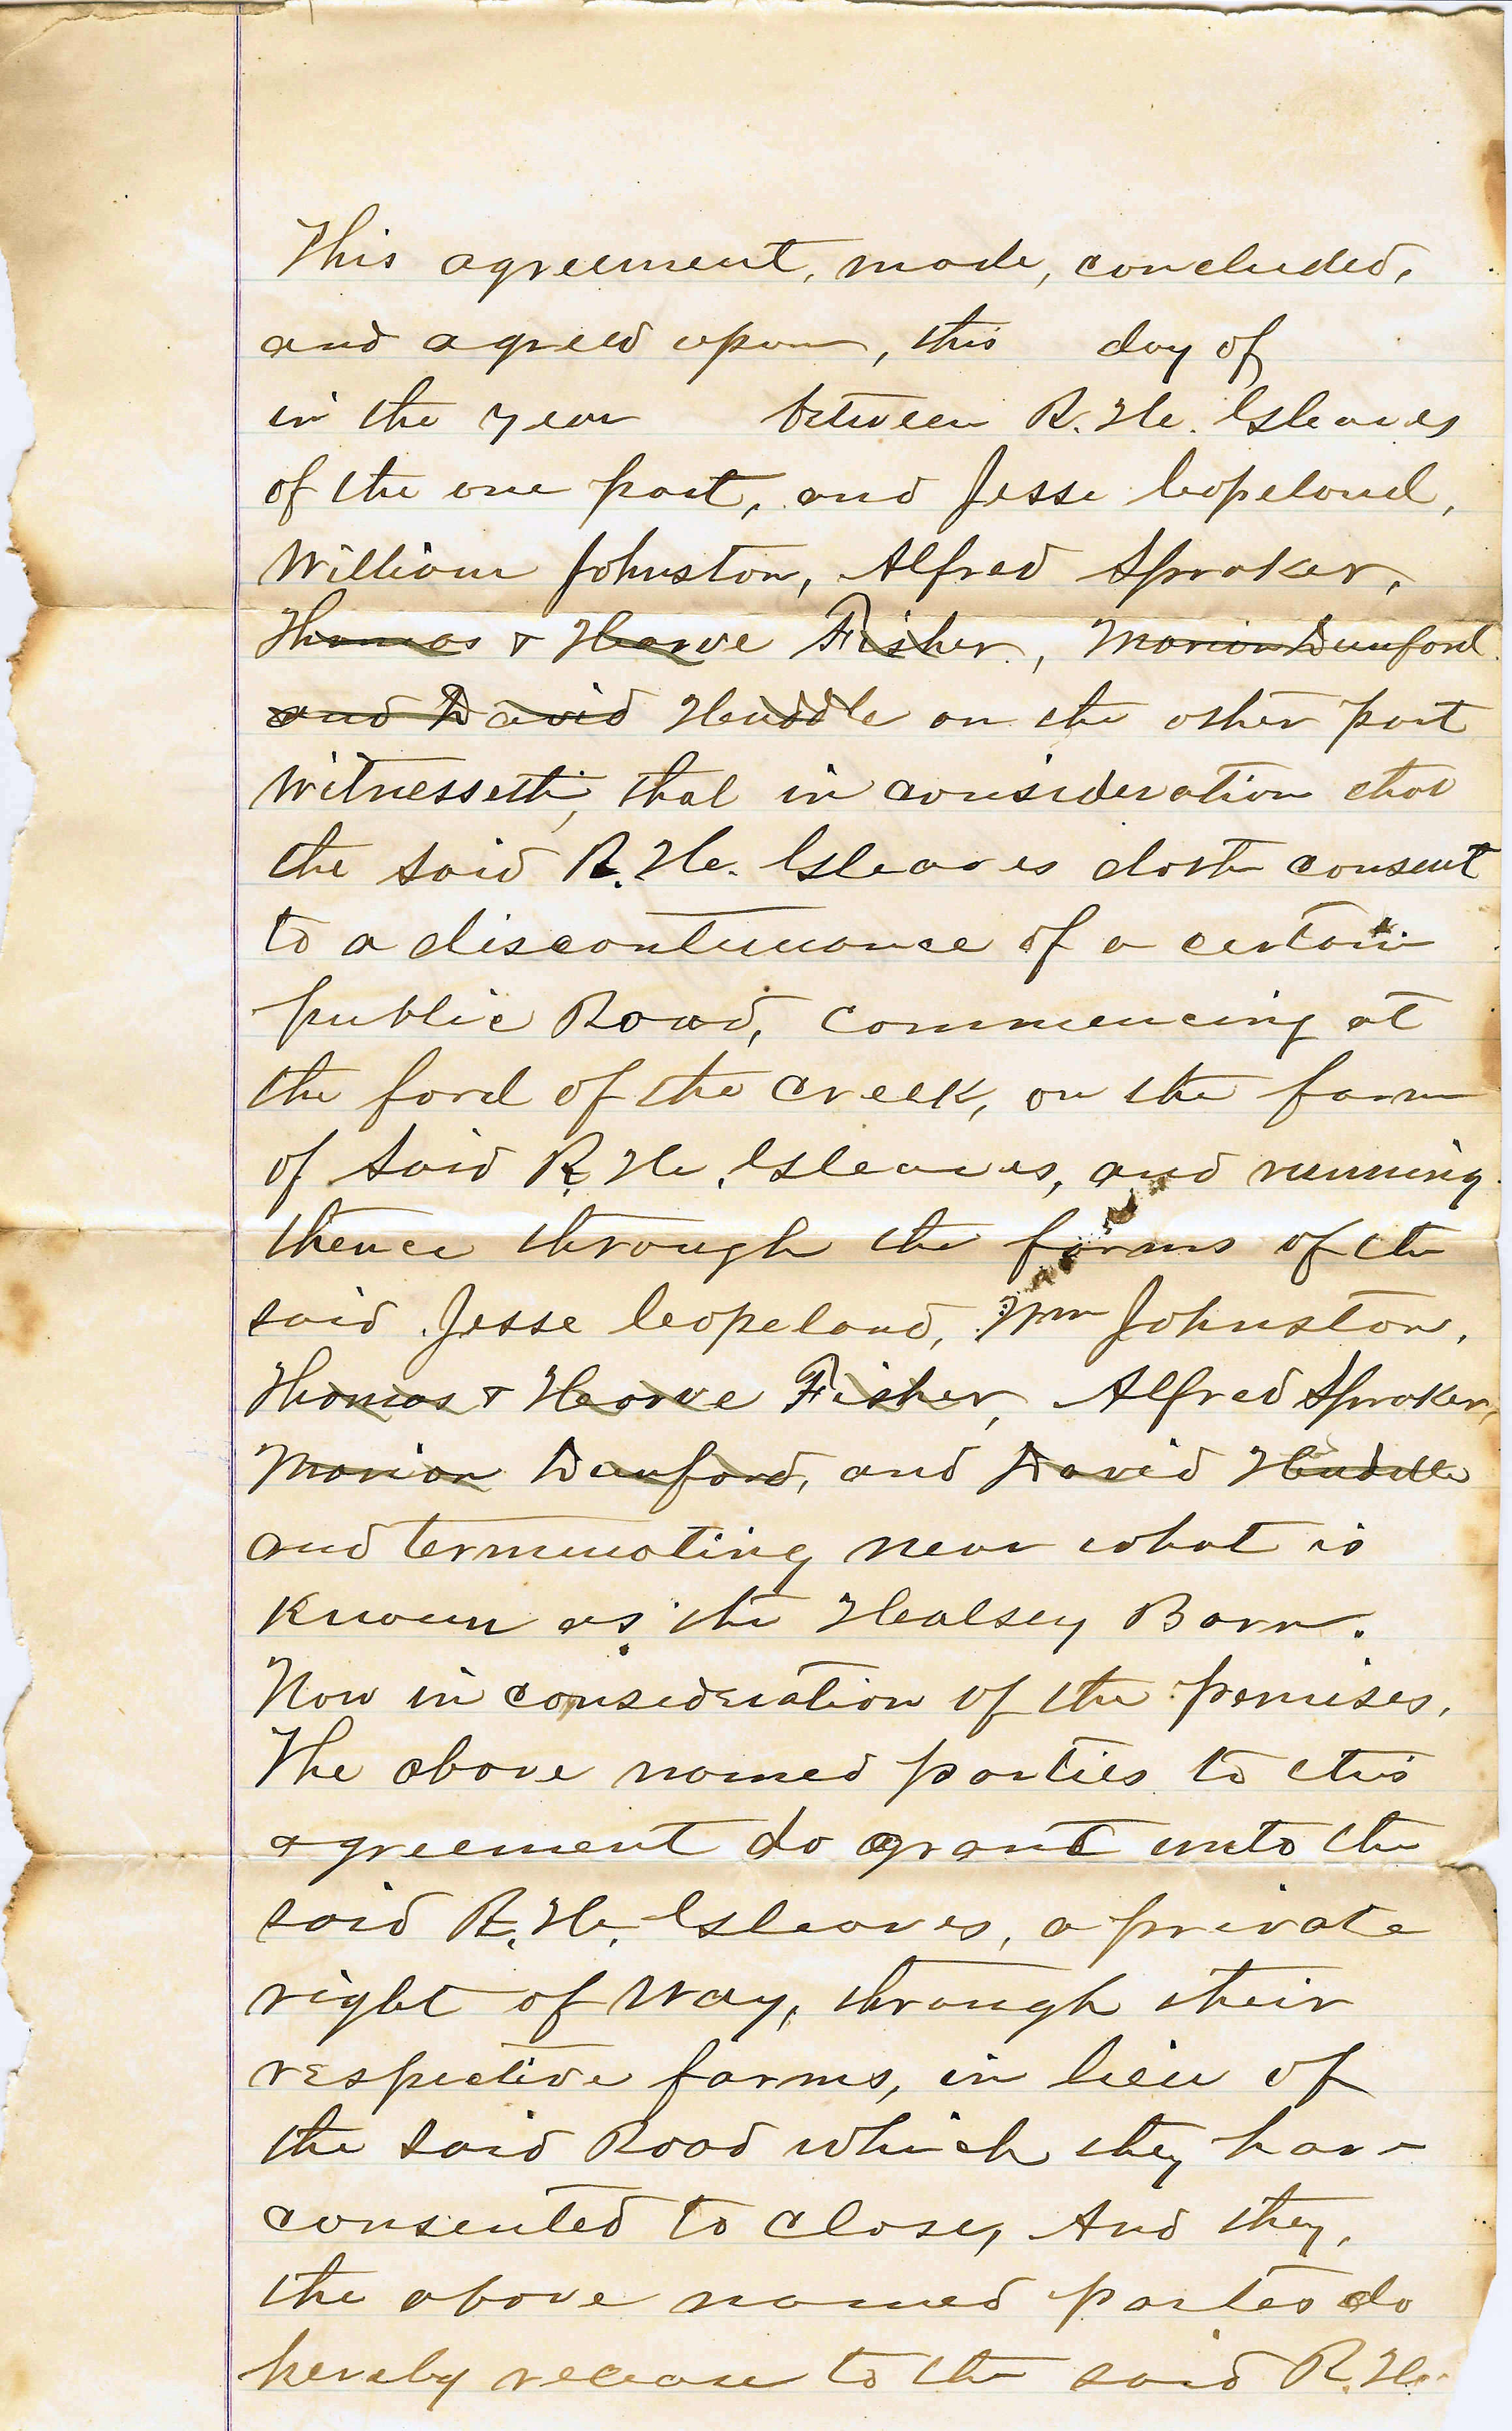 This agreement, made, concluded,
and agreed upon, this day of
in the year between R. H. Gleaves
of the one part, and Jesse Copeland,
William Johnston, Alfred Sproker,
Thomas & Harve Fisher, Marion Dunford
and David Huddle on the other part
Witnesseth, that in consideration that
the said R. H. Gleaves doth consent
to a discontinuance of a certain
public Road, commencing at
the ford of the creek, on the farm
of said R. H. Gleaves, and running
thence through the farms of the
said Jesse Copeland, Wm Johnston,
Thomas & Harve Fisher, Alfred Sproker,
Marion Dunford, and David Huddle
and terminating near what is
known as the Halsey Barn.
Now in consideration of the premises,
The above named parties to this
agreement do grant unto the
said R. H. Gleaves, a private
right of Way, through their
respective farms, in lieu of
the said Road which they have
consented to close, And they,
the above named parties do
hereby release to the said R. H.